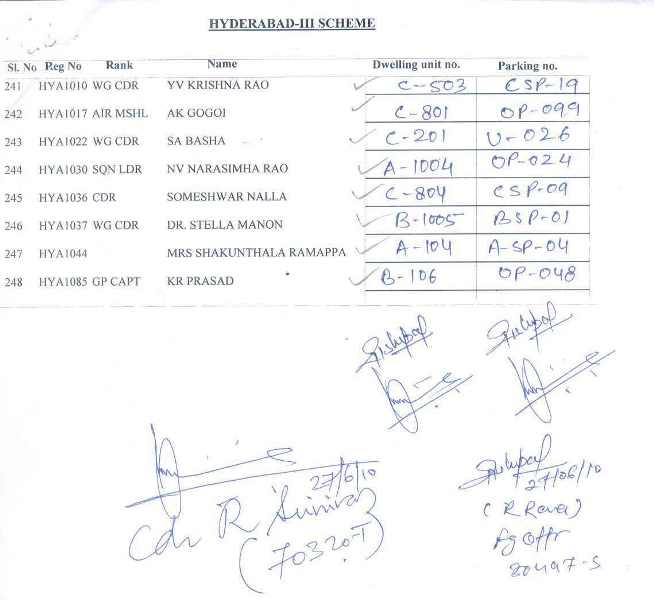 HYDERABAD-III SCHEME
Sl. No Reg No Rank Name Dwelling unit no. Parking no.
241 HYA1010 WG CDR YV KRISHNA RAO C-503 CSP-19
242 HYA1017 AIR MSHL AK GOGOI C-801 OP-099
243 HYA1022 WG CDR SA BASHA C-201 U-026
244 HYA1030 SQN LDR NV NARASIMHA RAO A-1004 OP-024
245 HYA1036 CDR SOMESHWAR NALLA C-804 CSP-09
246 HYA1037 WG CDR DR. STELLA MANON B-1005 BSP-01
247 HYA1044 MRS SHAKUNTHALA RAMAPPA A-104 A-SP-04
248 HYA1085 GP CAPT KR PRASAD B-106 OP-048
27/6/10
Cdr R
(70320-T)
27/06/10
(R
Fg Offr
20497-S